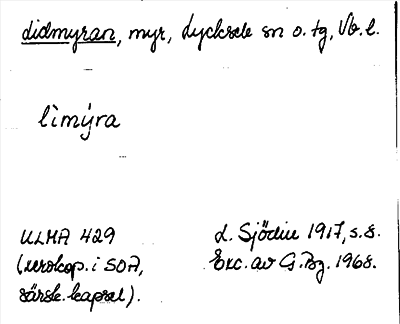 didmyran, myr, Lycksele sn o. tg, Vb. l.
lìmýra
ULMA 429
L. Sjödin 1917, s. 8.
(xerokop. i SOA,
Exc. av G. Bg. 1968.
särsk. kapsel).